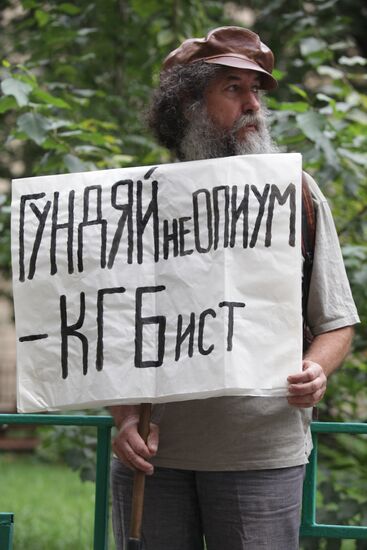 ГУНДЯЙ не ОПИУМ
– КГБист